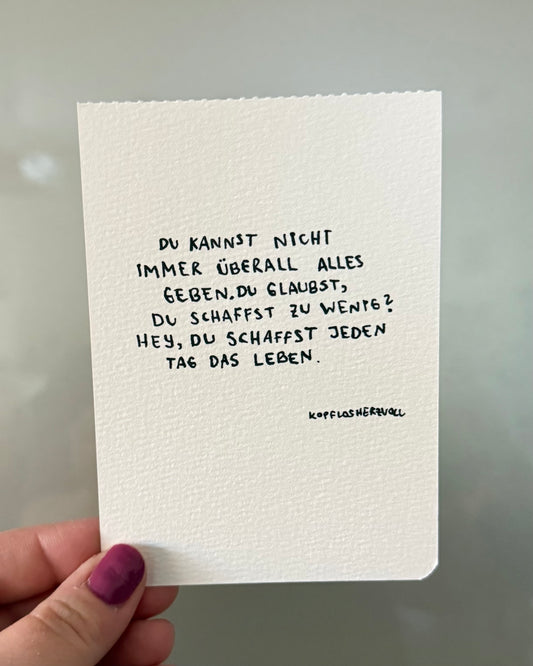 DU KANNST NICHT
IMMER ÜBERALL ALLES
GEBEN. DU GLAUBST,
DU SCHAFFST ZU WENIG?
HEY, DU SCHAFFST JEDEN
TAG DAS LEBEN.
KOPFLOSHERZVOLL